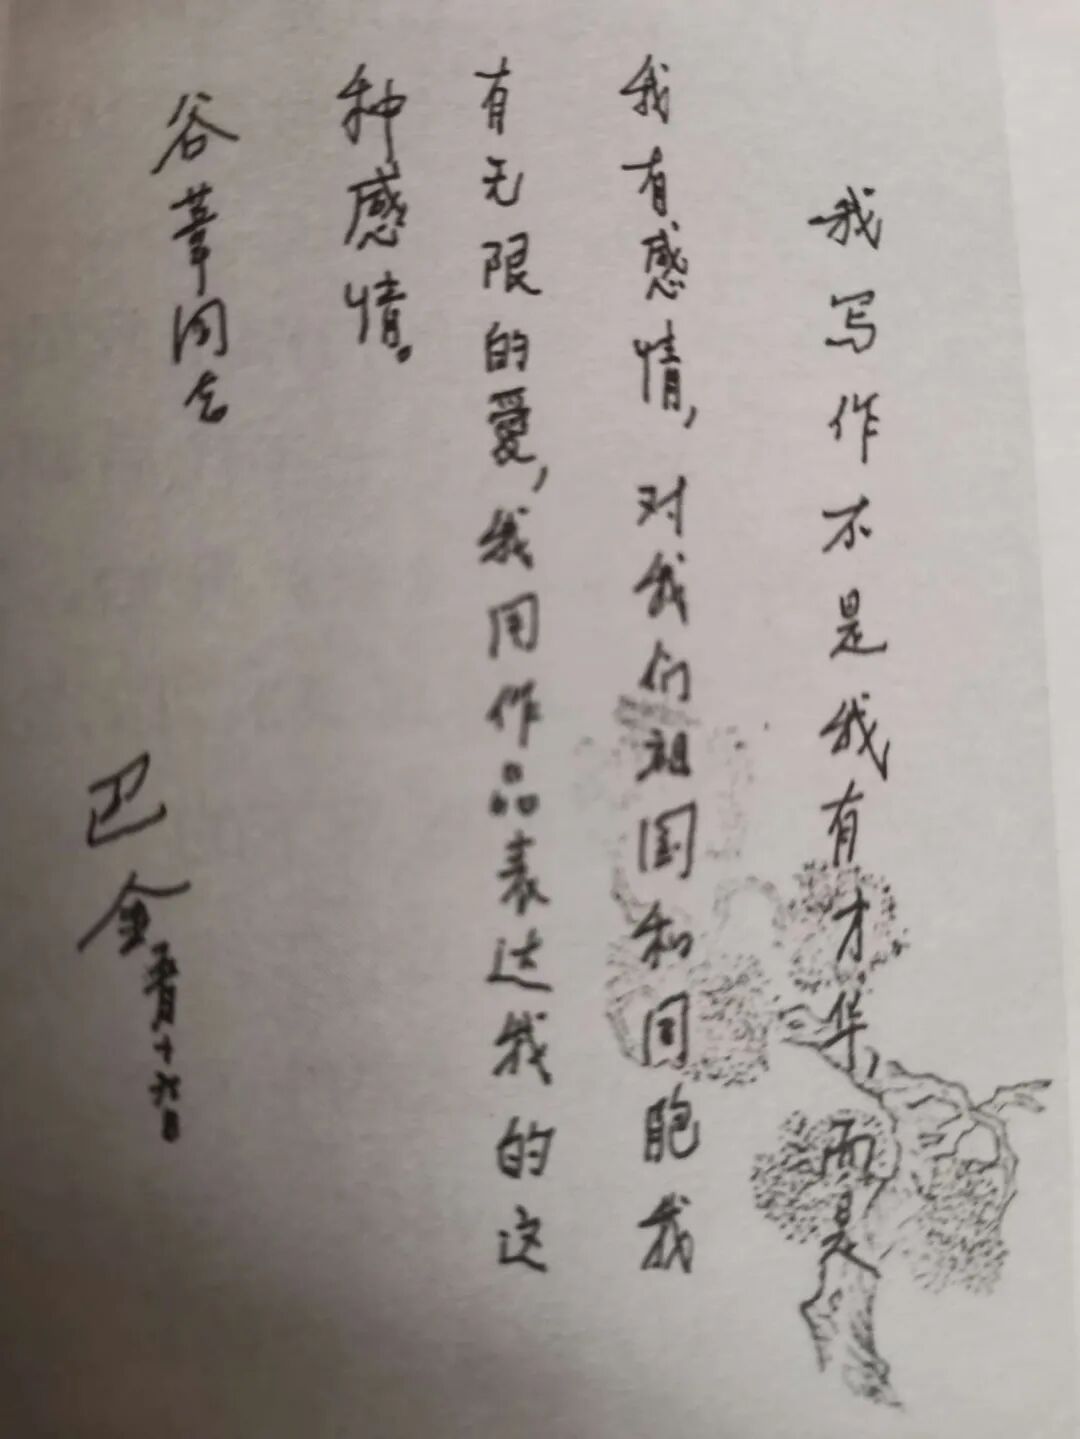 我写作不是我有才华,而是
我有感情,对我们祖国和同胞我
有无限的爱,我用作品表达我的这
种感情。
谷苇同志
巴金
月十六日